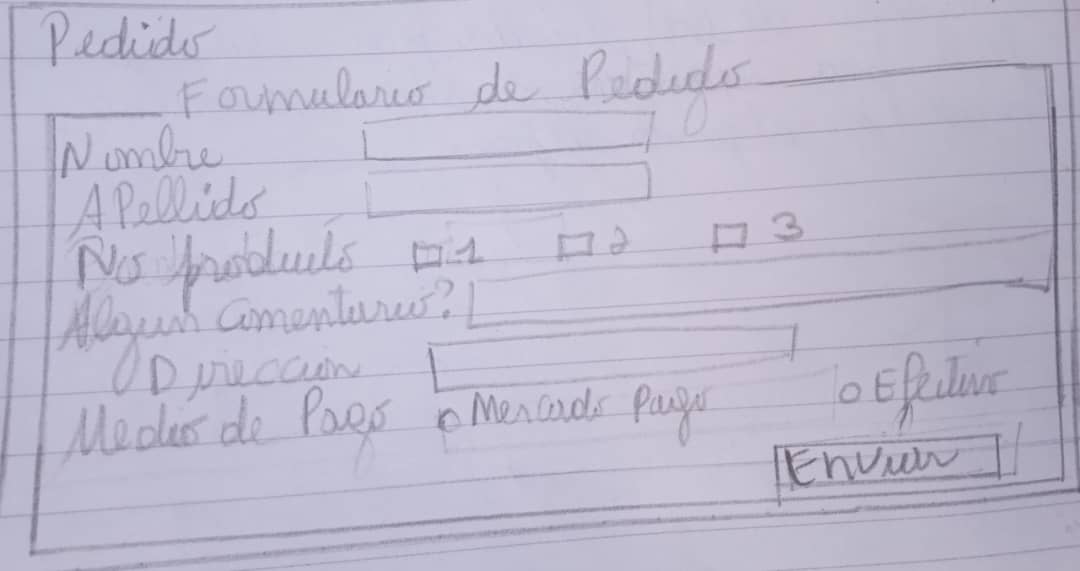 Pedido
Formulario de Pedido
Nombre
APellido
No producto 1 2 3
Algun comentario?
Direccion
Medio de Pago Mercado Pago Efectivo
Enviar